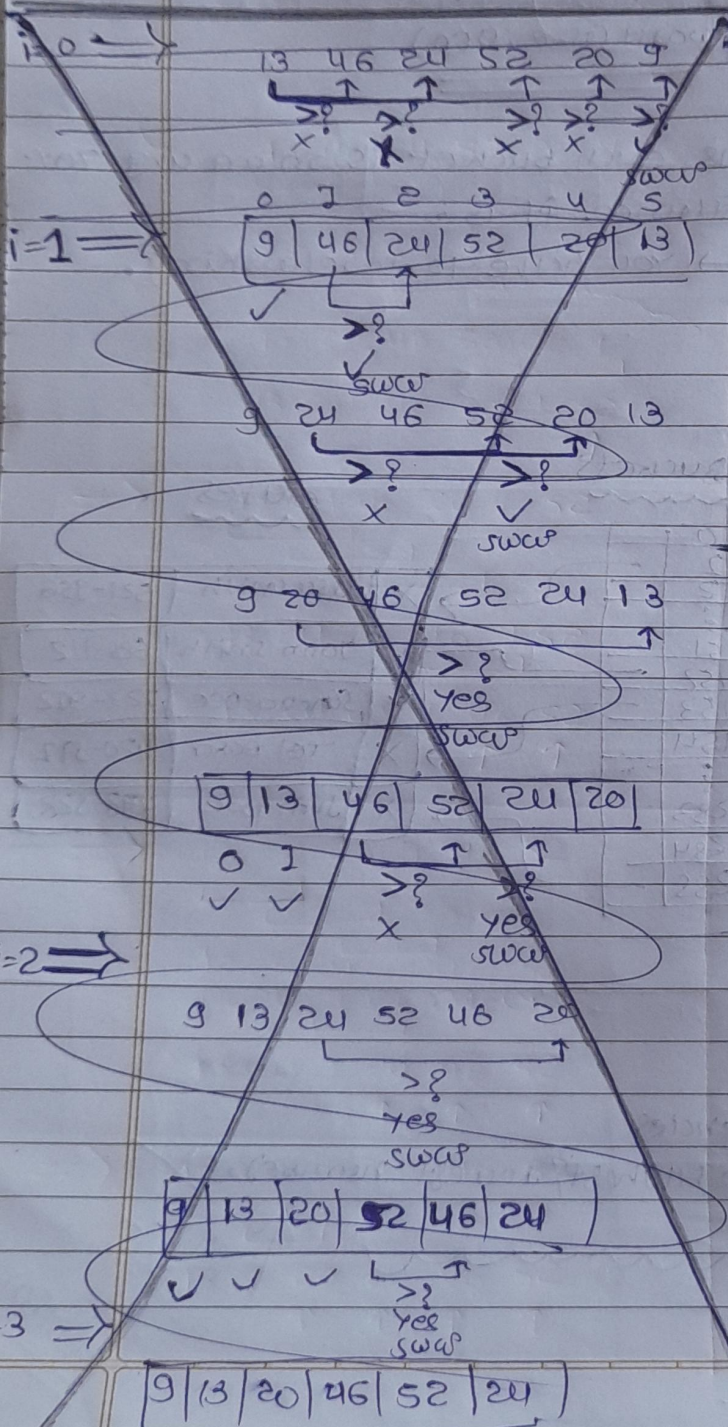 i=0 ⇒ 13 46 24 52 20 9
>? >? >? >? >?
x x x x ✓
swap
0 1 2 3 4 5
i=1 ⇒ 9 | 46 | 24 | 52 | 20 | 13
✓ >?
✓
swap
9 24 46 52 20 13
>? >?
x ✓
swap
9 20 46 52 24 13
>?
yes
swap
9 | 13 | 46 | 52 | 24 | 20
0 1 >? >?
✓ ✓ x yes
swap
=2 ⇒
9 13 24 52 46 20
>?
yes
swap
9 | 13 | 20 | 52 | 46 | 24
✓ ✓ ✓ >?
3 ⇒ yes
swap
9 | 13 | 20 | 46 | 52 | 24